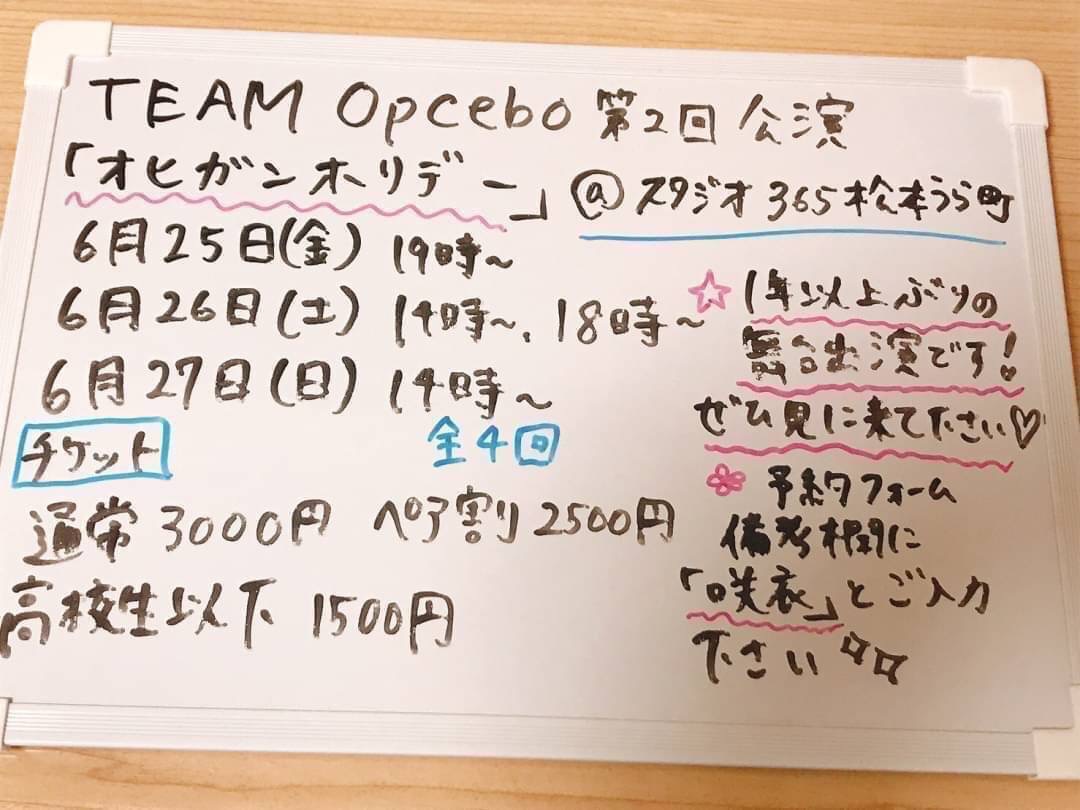 TEAM Opcebo 第2回 公演
「オヒガンホリデー」@スタジオ365松本うら町
6月25日(金) 19時〜
6月26日(土) 14時〜、18時〜
6月27日(日) 14時〜
全4回
チケット
通常 3000円 ペア割り 2500円
高校生以下 1500円
☆ 1年以上ぶりの
舞台出演です!
ぜひ見に来て下さい♡
予約フォーム
備考欄に
「咲衣」とご入力
下さい